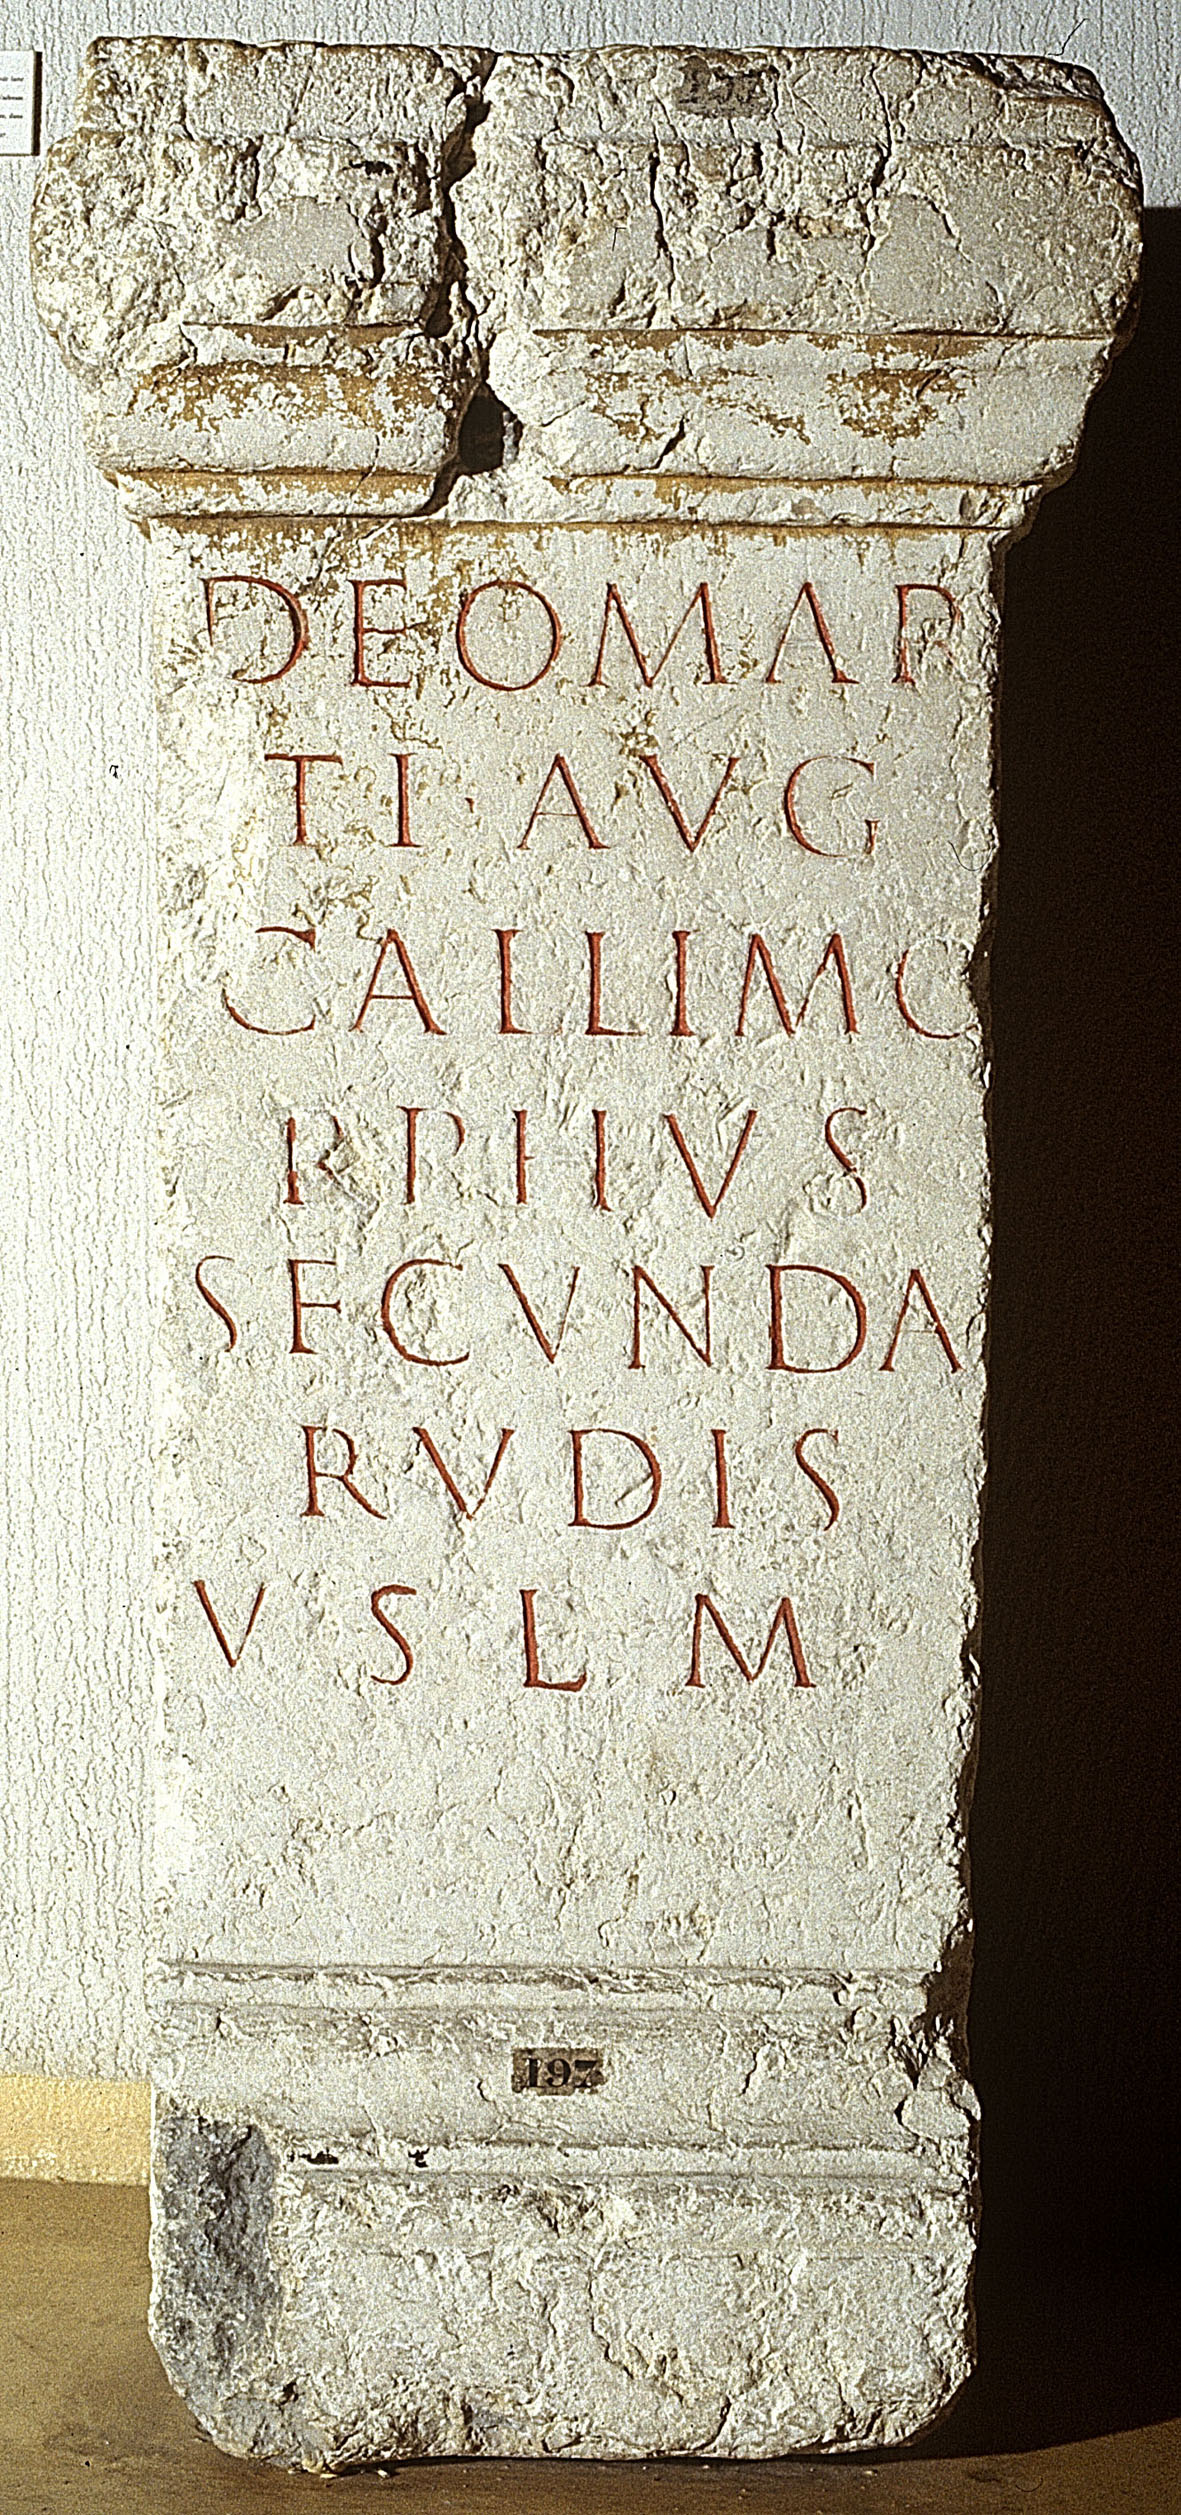 DEO MAR
TI AVG
CALLIMO
RPHVS
SECVNDA
RVDIS
V S L M
197